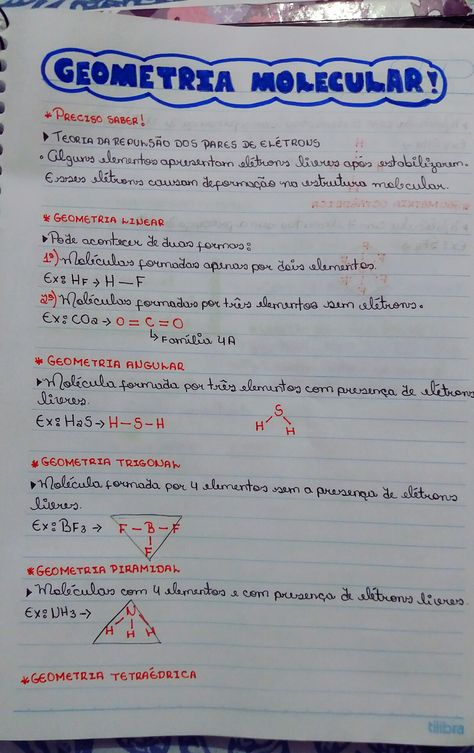 GEOMETRIA MOLECULAR!
*PRECISO SABER!
▶ TEORIA DA REPULSÃO DOS PARES DE ELÉTRONS
• Alguns elementos apresentam elétrons livres após estabilizarem.
Esses elétrons causam deformação na estrutura molecular.
*GEOMETRIA LINEAR
▶ Pode acontecer de duas formas:
1º) Moléculas formadas apenas por dois elementos.
Ex: HF → H – F
2º) Moléculas formadas por três elementos sem elétrons.
Ex: CO2 → O = C = O
↳ Família 4A
*GEOMETRIA ANGULAR
▶ Molécula formada por três elementos com presença de elétrons
livres.
Ex: H2S → H – S – H
S
H H
*GEOMETRIA TRIGONAL
▶ Molécula formada por 4 elementos sem a presença de elétrons
livres.
Ex: BF3 → F – B – F
F
*GEOMETRIA PIRAMIDAL
▶ Moléculas com 4 elementos e com presença de elétrons livres.
Ex: NH3 → N
H H H
*GEOMETRIA TETRAÉDRICA
tilibra